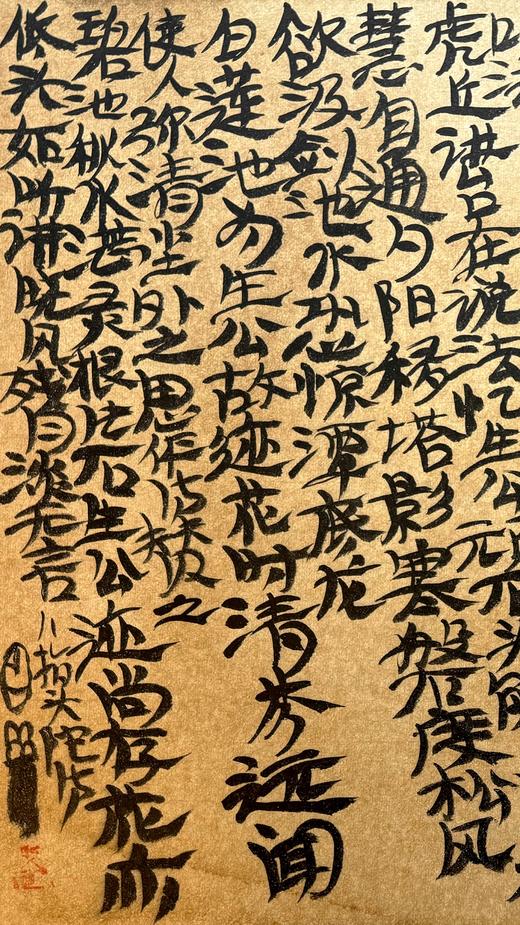 虎丘讲台在说法忆生公
慧自通夕阳移塔影寒磬度松风
欲汲剑池水恐惊潭底龙
白莲池为生公故迹花时清芬远闻
使人弥清尘外之思作诗赞之
碧池秋水灵根片石生公迹尚存花亦
低头如听讲晓风残月淡无言
八指头陀诗